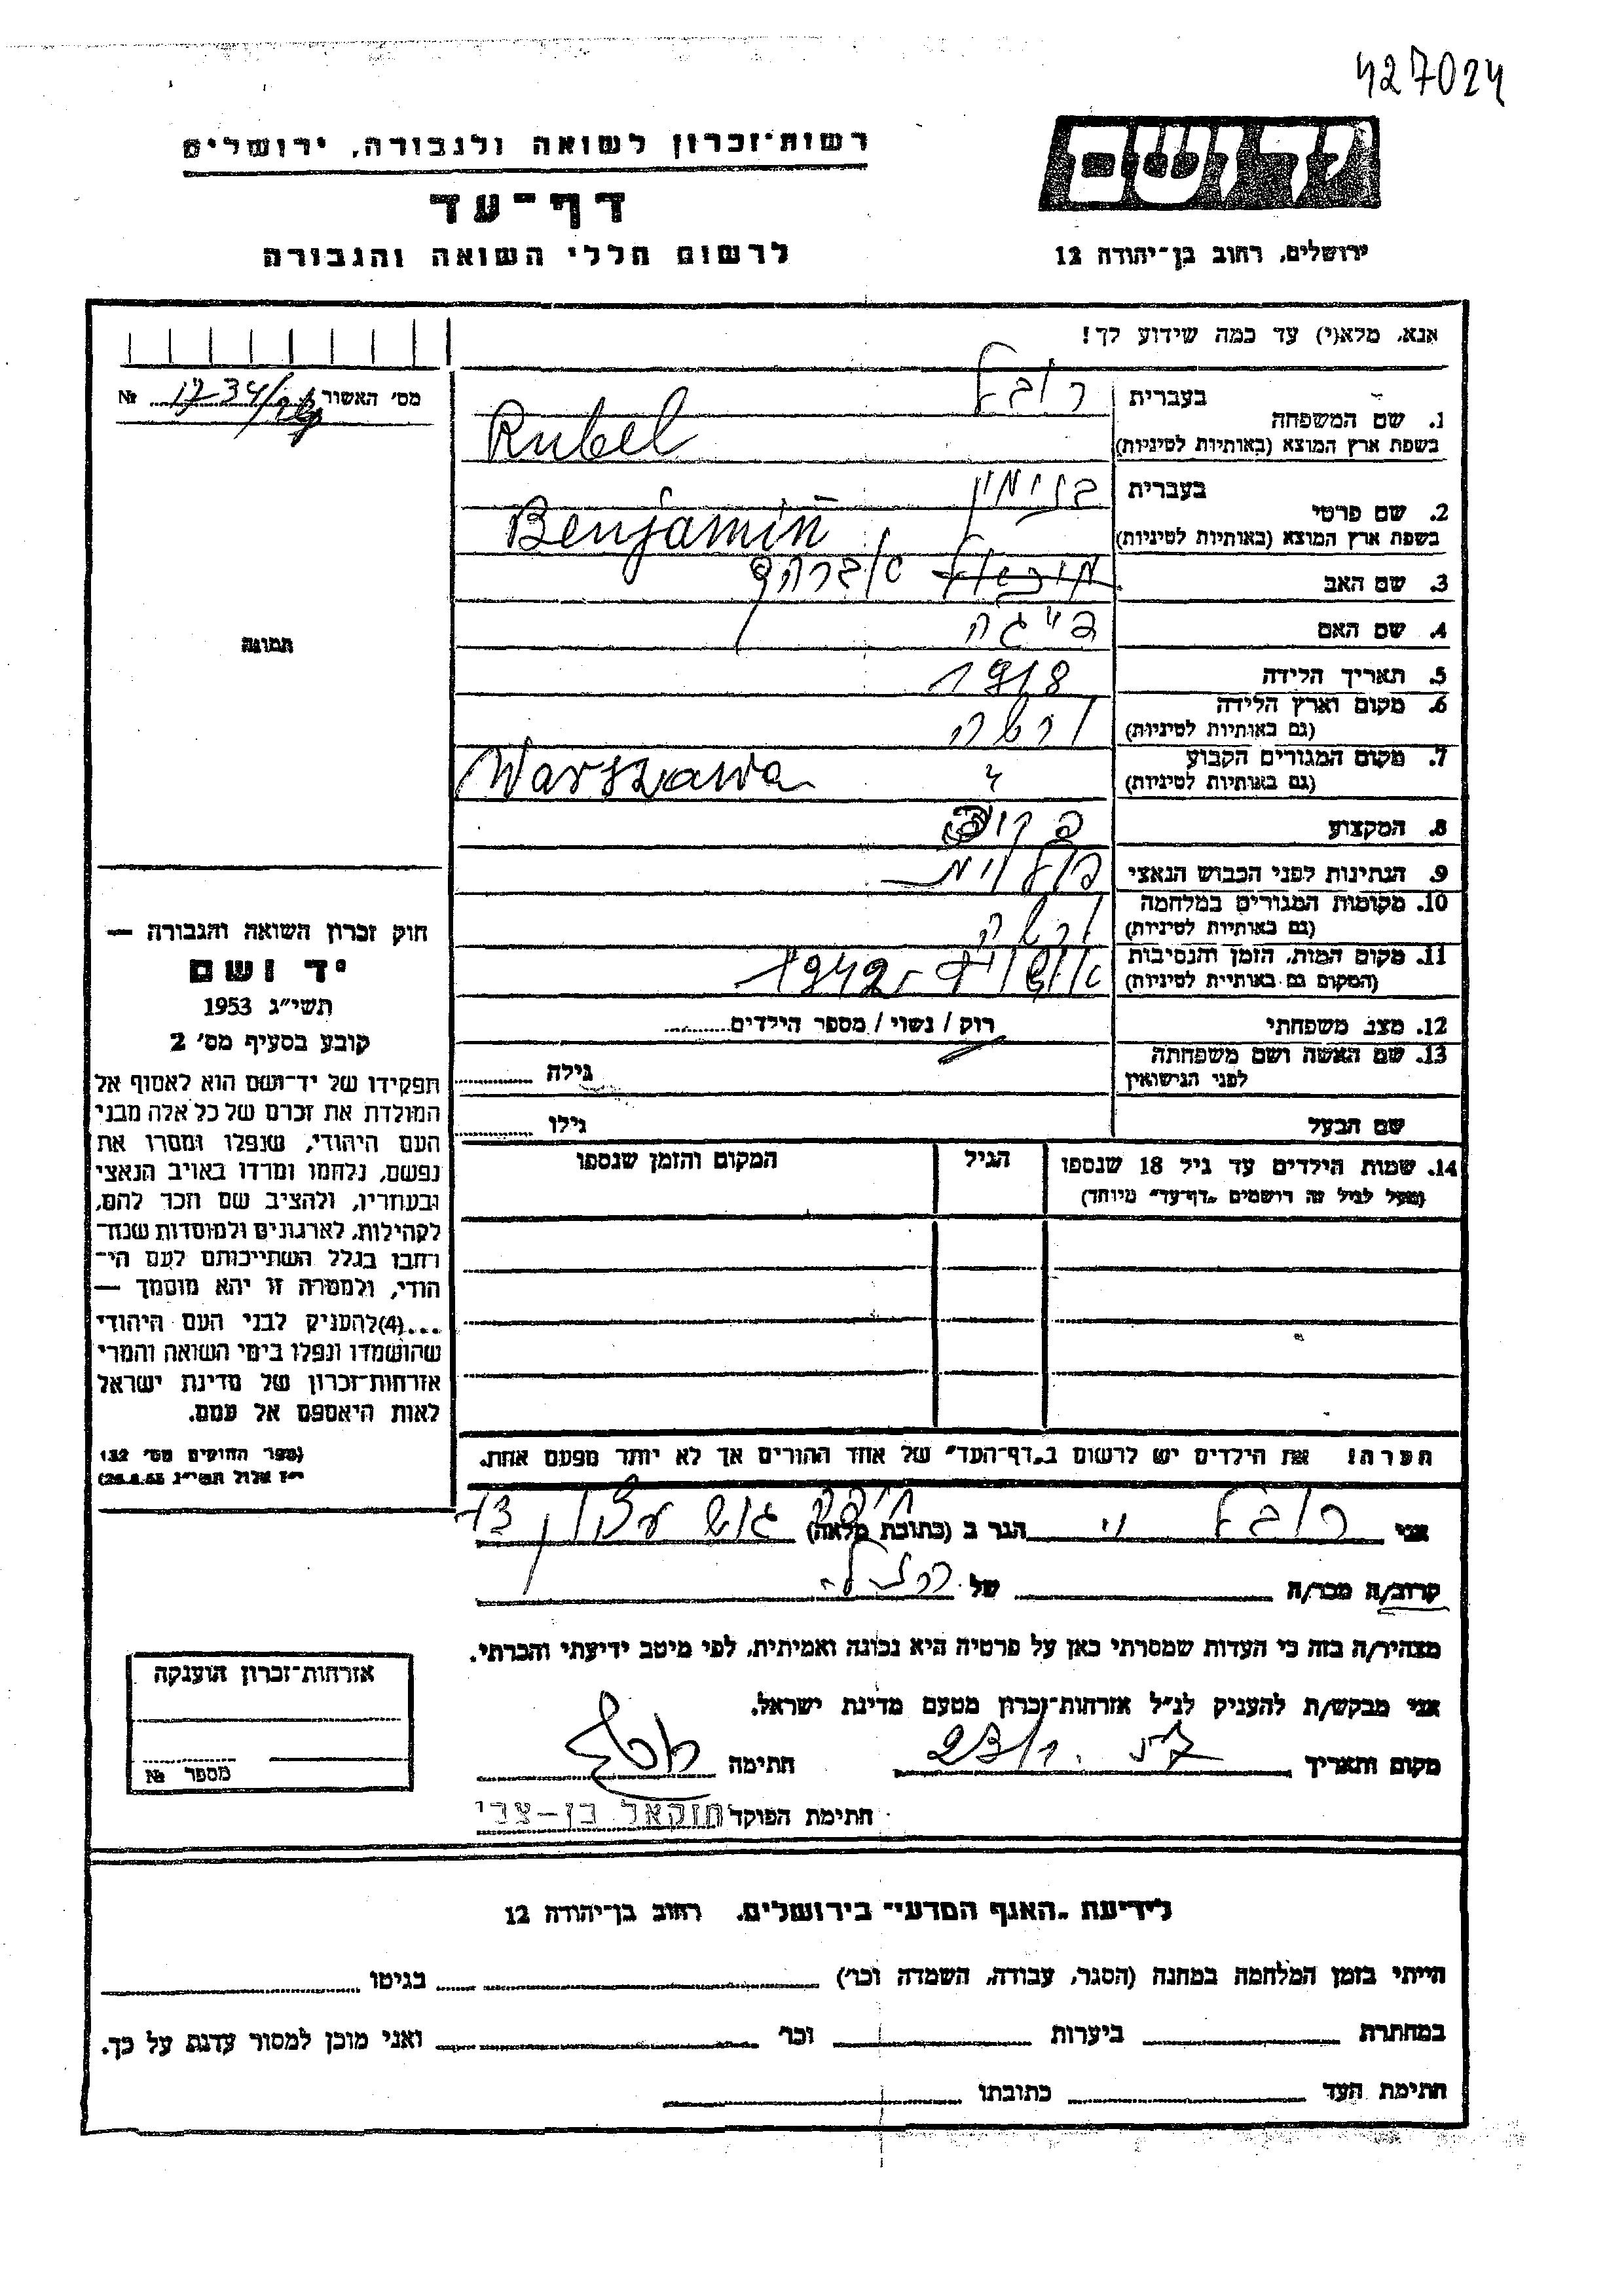 427024
רשות־זכרון לשואה ולגבורה, ירושלים
דף־עד
לרשום חללי השואה והגבורה
יד ושם
ירושלים, רחוב בן־יהודה 12
אנא, מלא(י) עד כמה שידוע לך!
מס' האשור 1734/ №
1. שם המשפחה בעברית רובל
בשפת ארץ המוצא (באותיות לטיניות) Rubel
2. שם פרטי בעברית בנימין
בשפת ארץ המוצא (באותיות לטיניות) Benjamin
3. שם האב אברהם
4. שם האם פייגה
5. תאריך הלידה 1918
6. מקום וארץ הלידה ורשה
(גם באותיות לטיניות)
7. מקום המגורים הקבוע "
(גם באותיות לטיניות) Warszawa
8. המקצוע
9. הנתינות לפני הכבוש הנאצי פולנית
10. מקומות המגורים במלחמה ורשה
(גם באותיות לטיניות)
11. מקום המות, הזמן והנסיבות אושויץ 1942
(המקום גם באותיות לטיניות)
12. מצב משפחתי רוק / נשוי / מספר הילדים
13. שם האשה ושם משפחתה גילה
לפני הנישואין
שם הבעל גילו
14. שמות הילדים עד גיל 18 שנספו הגיל המקום והזמן שנספו
(מעל לגיל זה רושמים "דף־עד" מיוחד)
תמונה
חוק זכרון השואה והגבורה —
יד ושם
תשי"ג 1953
קובע בסעיף מס' 2
תפקידו של יד־ושם הוא לאסוף אל
המולדת את זכרם של כל אלה מבני
העם היהודי, שנפלו ומסרו את
נפשם, נלחמו ומרדו באויב הנאצי
ובעוזריו, ולהציב שם וזכר להם,
לקהילות, לארגונים ולמוסדות שנח־
רבו בגלל השתייכותם לעם הי־
הודי, ולמטרה זו יהא מוסמך —
...(4) להעניק לבני העם היהודי
שהושמדו ונפלו בימי השואה והמרי
אזרחות־זכרון של מדינת ישראל
לאות היאספם אל עמם.
(ספר החוקים מס' 132
י"ז אלול תשי"ג 28.8.53)
הערה! את הילדים יש לרשום ב"דף־העד" של אחד ההורים אך לא יותר מפעם אחת.
אני רובל הגר ב (כתובת מלאה) חיפה גוש עציון
קרוב/ה מכר/ה של
מצהיר/ה בזה כי העדות שמסרתי כאן על פרטיה היא נכונה ואמיתית, לפי מיטב ידיעתי והכרתי.
אני מבקש/ת להעניק לנ"ל אזרחות־זכרון מטעם מדינת ישראל.
מקום ותאריך 23/1 חתימה
חתימת הפוקד חזקאל בן-צבי
אזרחות־זכרון הוענקה
מספר №
לידיעת "האגף המדעי" בירושלים, רחוב בן־יהודה 12
הייתי בזמן המלחמה במחנה (הסגר, עבודה, השמדה וכו') בגיטו
במחתרת ביערות וכו' ואני מוכן למסור עדות על כך.
חתימת העד כתובתו